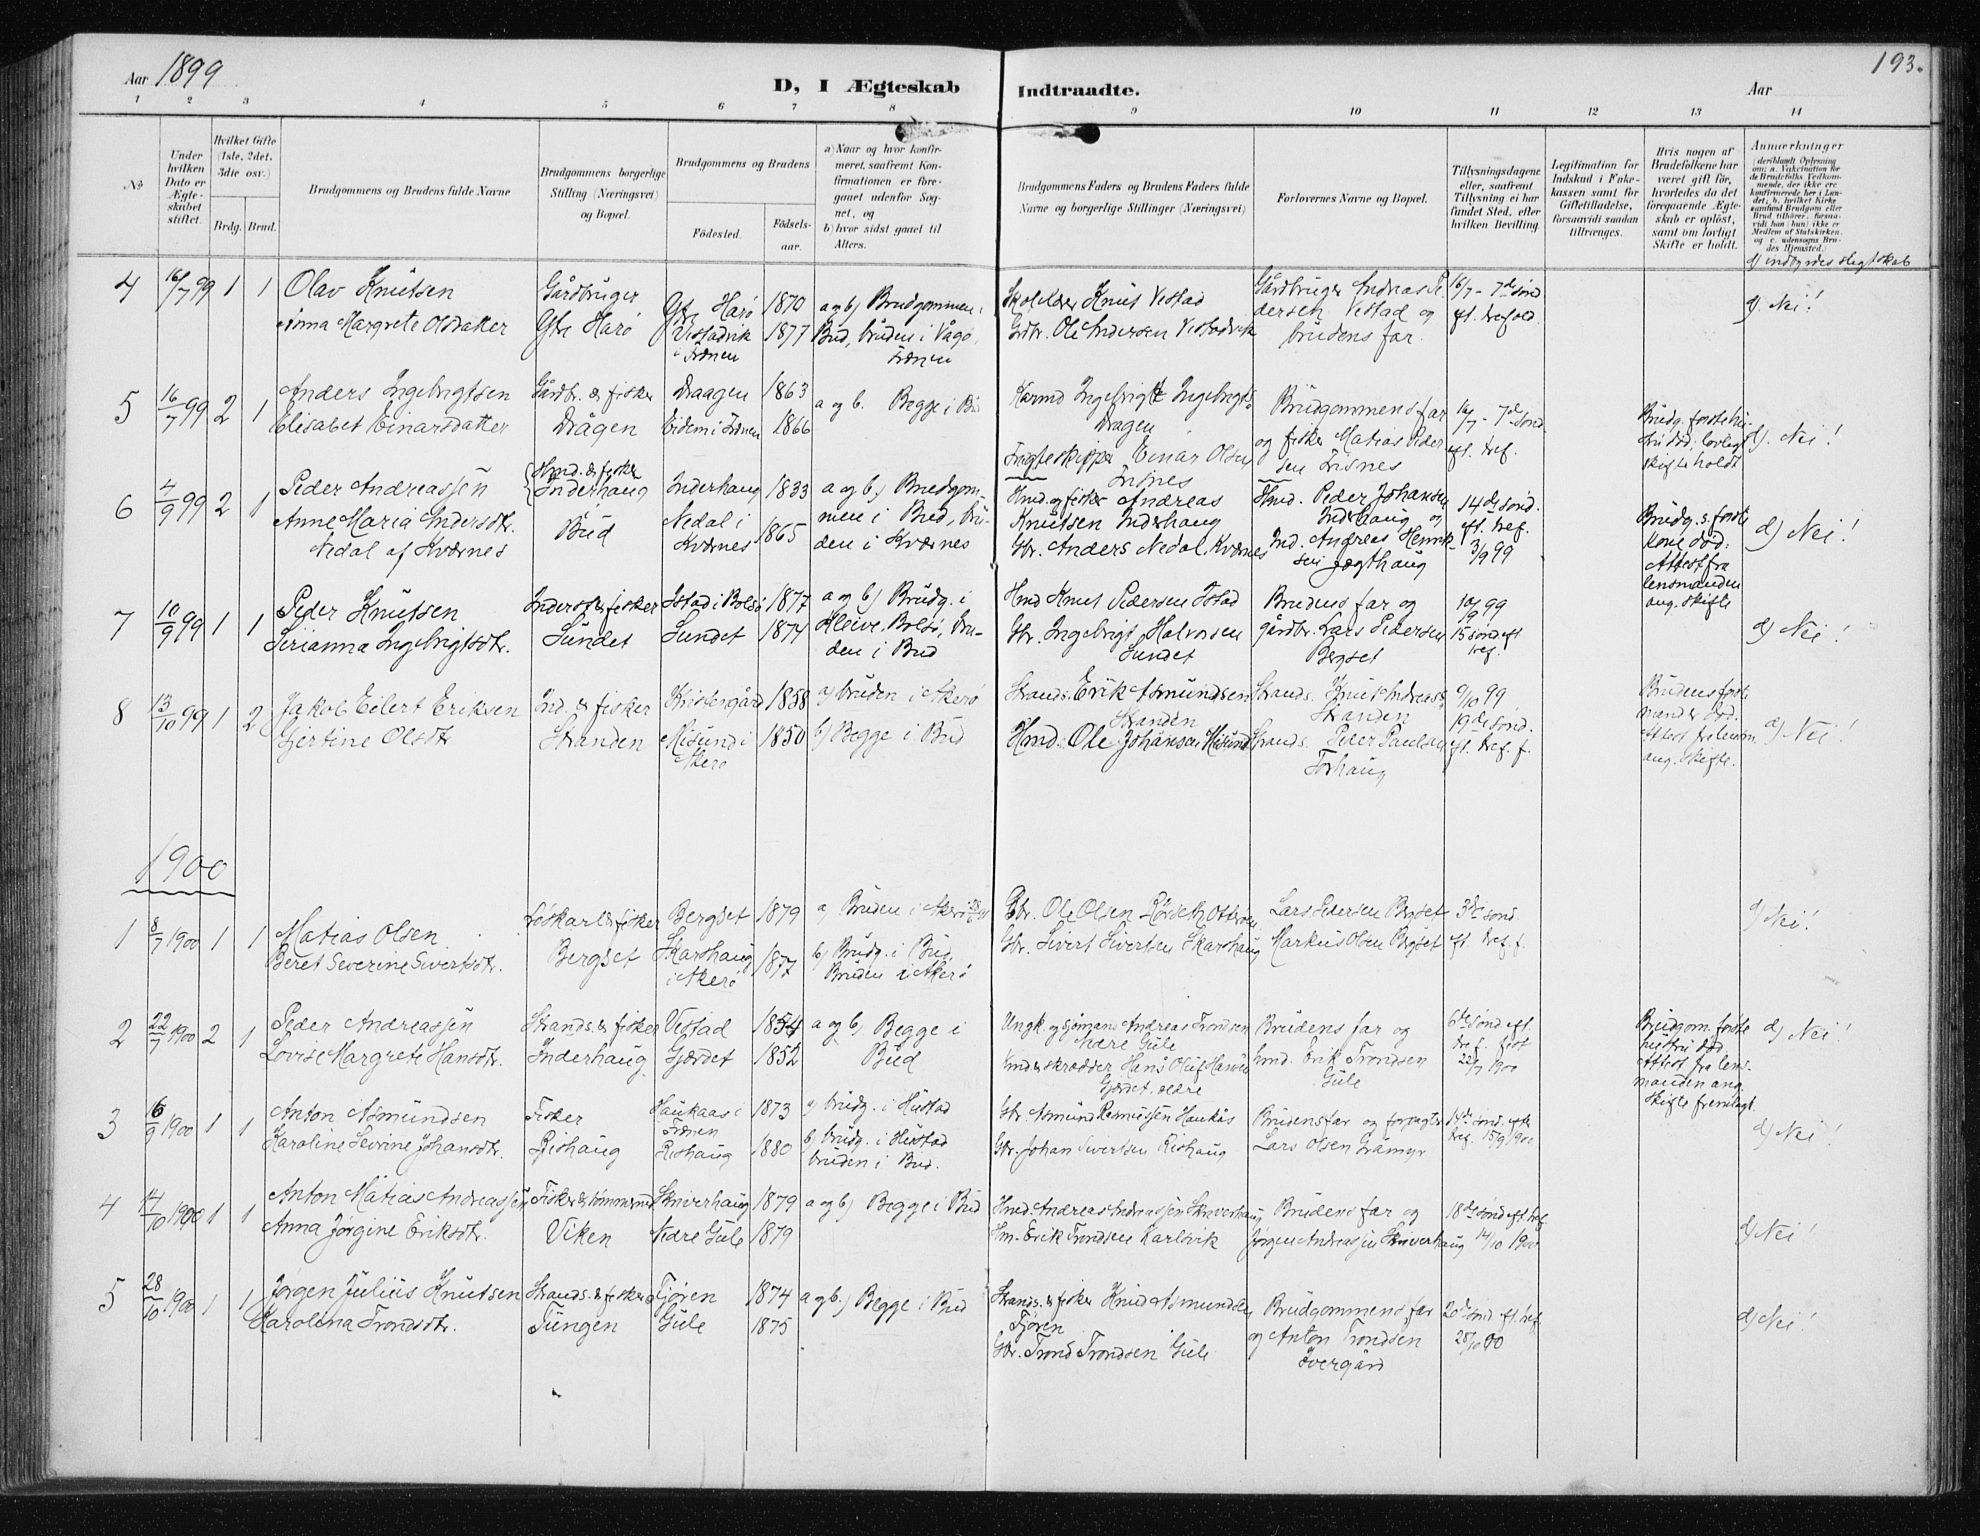 Aar 1899
D, I Ægteskab Indtraadte.
Aar
193.
1 2 3 4 5 6 7 8 9 10 11 12 13 14
No
Under hvilken Dato er Ægteskabet stiftet.
Hvilket Gifte (1ste, 2det, 3die osv.)
Brdg. Brud.
Brudgommens og Brudens fulde Navne
Brudgommens borgerlige Stilling (Næringsvei) og Bopæl.
Brudgommens og Brudens
Fødested.
Fødselsaar.
a) Naar og hvor konfirmeret, saafremt Konfirmationen er foregaaet udenfor Sognet, og
b) hvor sidst gaaet til Alters.
Brudgommens Faders og Brudens Faders fulde Navne og borgerlige Stillinger (Næringsvei)
Forlovernes Navne og Bopæl.
Tillysningsdagene eller, saafremt Tillysning ei har fundet Sted, efter hvilken Bevilling.
Legitimation for Indskud i Enkekassen samt for Giftetilladelse, forsaavidt saadan tiltrænges.
Hvis nogen af Brudefolkene har været gift før, hvorledes da det foregaaende Ægteskab er opløst, samt om lovligt Skifte er holdt.
Anmærkninger
d) indbyrdes slegtskab
4 16/7 99 1 1 Olav Knutsen
Anna Margrete Olsdatter
Gårdbruger
Ytr. Harø
Ytr. Harø 1870
Vestadvik i Frænen 1877
a og b) Brudgommen i
Bud, bruden i Vågø,
Frænen
Knut Vestad
Grdbr. Ole Andersen Vestadvik
Gårdbruger Andreas Pedersen Vestad og
brudens far.
16/7 - 7de sønd
eft. trefold.
d) Nei!
5 16/7 99 2 1 Anders Ingebrigtsen
Elisabet Einarsdatter
Gårdbr. & fisker
Drågen
Draagen 1863
Eidem i Frænen 1866
a og b. Begge i Bud
Ingebrigt Ingebrigts.
Dragen
Einar Olsen
Brudgommens far
og fisker Matias Peder
sen
16/7 - 7de sønd.
eft. tref.
Brudg. første hu
stru død, lovligt
skifte holdt
d). Nei!
6 4/9 99 2 1 Peder Andreassen
Anne Maria Andersdtr.
Nedal af Kværnes
Hmd. & fisker
Inderhaug
Bud
Inderhaug 1833
Nedal i
Kværnes 1865
a og b) Brudgom-
men i Bud, bru-
den i Kværnes
Hmd. og fisker Andreas
Knutsen Inderhaug
Gbr. Anders Nedal, Kværnes
Hmd. Peder Johansen
Inderhaug og
Ind. Andreas Henrik-
sen Jægthaug
14de sønd.
eft. tref.
3/9 99
Brudg.s første
kone død.
Attest fra
lensmanden
ang. skifte
d) Nei!
7 10/9 99 1 1 Peder Knutsen
Serianna Ingebrigtsdtr.
Inderst & fisker
Sundet
Istad i Bolsø 1877
Sundet 1874
a og b) Brudg. i
Kleive, Bolsø, bru-
den i Bud
Hmd Knut Pedersen Istad
Gbr. Ingebrigt Halvorsen
Sundet
Brudens far og
gårdbr. Lars Pedersen
Bergset
10/9 99
15 sønd eft
tref.
d) Nei!
8 13/10 99 1 2 Jakob Eilert Eriksen
Gjertine Olsdtr
Ind. & fisker
Stranden
Kristengård 1858
Misund i
Akerø 1850
a) bruden i Akerø
b) Begge i Bud
Strands. Erik Asmundsen
Stranden
Hmd. Ole Johansen Misund
Strands. Knut Andreass.
Stranden
Strands. Peder Paulsen
Torhaug
9/10 99
19de sønd.
eft. tref. f.
Brudens første
mand er død.
Attest fra lensm.
ang. skifte.
d) Nei!
1900
1 8/7 1900 1 1 Matias Olsen
Beret Severine Sivertsdtr.
Løskarl & fisker
Bergset
Bergset 1879
Skarshaug
i Akerø 1877
a) Bruden i Akerø
b) Brudg. i Bud,
Bruden i Akerø
Gbr. Ole Olsen Rørset, Otterøen
Gbr. Sivert Sivertsen Skarshaug
Lars Pedersen Bergset
Markus Olsen Bergset
3die sønd.
eft. tref. f.
d) Nei!
2 22/7 1900 2 1 Peder Andreassen
Lovise Margrete Hansdtr.
Strands. & fisker
Inderhaug
Vestad 1854
Gjærdet 1852
a og b) Begge i
Bud
Ungk. og sjømand Andreas Trondsen
Nedre Gule
Hmd & skrædder Hans Oluf Hansen
Gjærdet, nedre
Brudens far og
hmd. Erik Trondsen
Gule
6te sønd eft.
tref. fest
22/7 1900
Brudgom. første
hustru død
Attest fra lens-
manden ang.
skifte fremlagt.
d) Nei!
3 6/9 1900 1 1 Anton Asmundsen
Karoline Sevrine Johansdtr.
Fisker
Rishaug
Haukaas i
Frænen 1873
Rishaug 1880
a) brudg. i Hustad
b) brudg. i Hustad
bruden i Bud.
Gbr. Asmund Rasmussen Haukås
Gbr. Johan Sivertsen Rishaug
Brudens far og forpagter
Lars Olsen
14de sønd. efter
tref. 15/9 1900
d) Nei!
4 14/10 1900 1 1 Anton Matias Andreassen
Anna Jørgine Eriksdtr.
Fisker & tømmermd
Viken
Skriverhaug 1879
Nedre Gule 1879
a og b) Begge i Bud
Hmd. Andreas Andreassen Skriverhaug
Hm. Erik Trondsen Karlsvik
Brudens far og
Jørgen Andreassen Skriverhaug
18de sønd eft. tref
14/10 1900
d) Nei!
5 28/10 1900 1 1 Jørgen Julius Knutsen
Karolina Trondsdtr.
Strands. & fisker
Tungen
Tjøren 1874
Gule 1875
a og b.) Begge i Bud
Strands. & fisker Knud Asmundsen
Tjøren
Gbr. Trond Trondsen Gule
Brudgommens far
og Anton Trondsen
Øvergård
20de sønd eft. tref.
28/10 00
d) Nei!